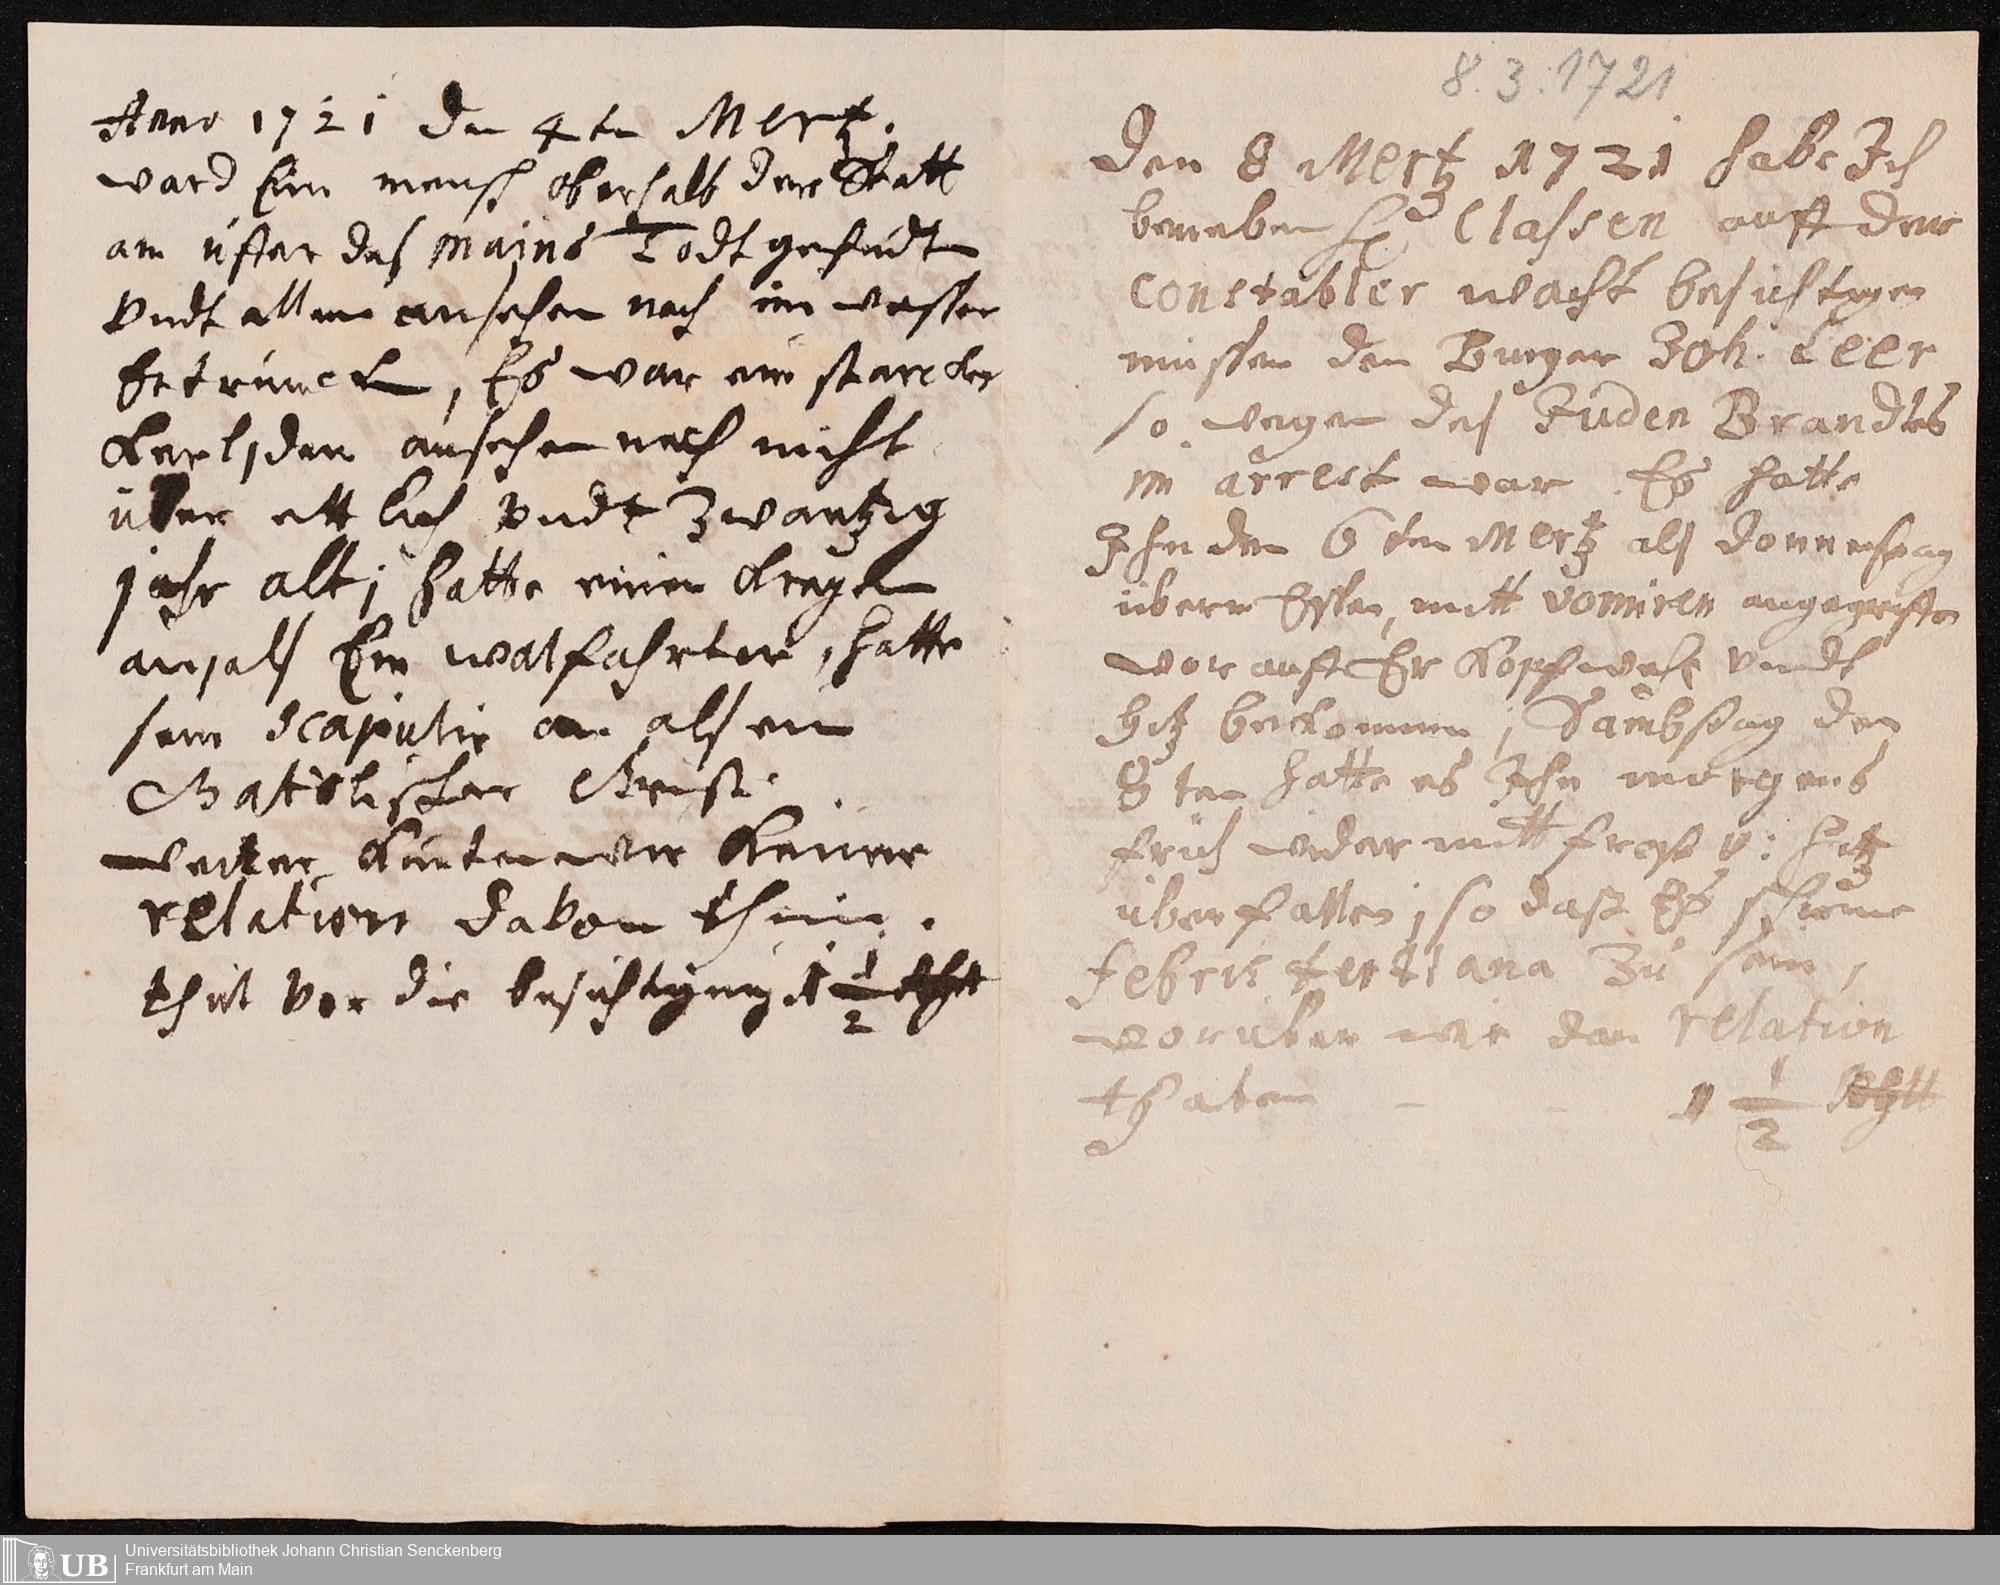 Anno 1721 den 4ten Mertz.
ward Ein mensch oberhalb der Statt
am ufter des mains Todt gefundten
Vndt allem ansehen nach im wasser
Ertruncken, Es war ein starcker
Kerl, dem ansehen nach nicht
über ettlich Vndt Zwantzig
jahr alt; hatte einen kragen
an, als Ein walfahrter, hatte
sein scapulir an als ein
Catolischer Christ.
weiter kunten wir keine
relation davon thun.
thut vor die besichtigung 1 1/2
8.3.1721
Den 8 Mertz 1721 habe Ich
beneben H. Classen auff der
constabler wacht besichtigen
müssen den Burger Joh. Leer
so wegen des Juden Brandtes
im arrest war. Es hatte
Ihn den 6ten Mertz als donnerstag
überm Essen, mitt vomiren angegriffen
worauff Er Kopfwehe vndt
hitz bekommen, Sambstag den
8ten hatte es Ihn morgens
früh wider mitt frost v: hitz
überfallen, so dasz Es schiene
febris tertiana zu sein,
worüber wir dan relation
thaten - - 1 1/2
Universitätsbibliothek Johann Christian Senckenberg
Frankfurt am Main
UB